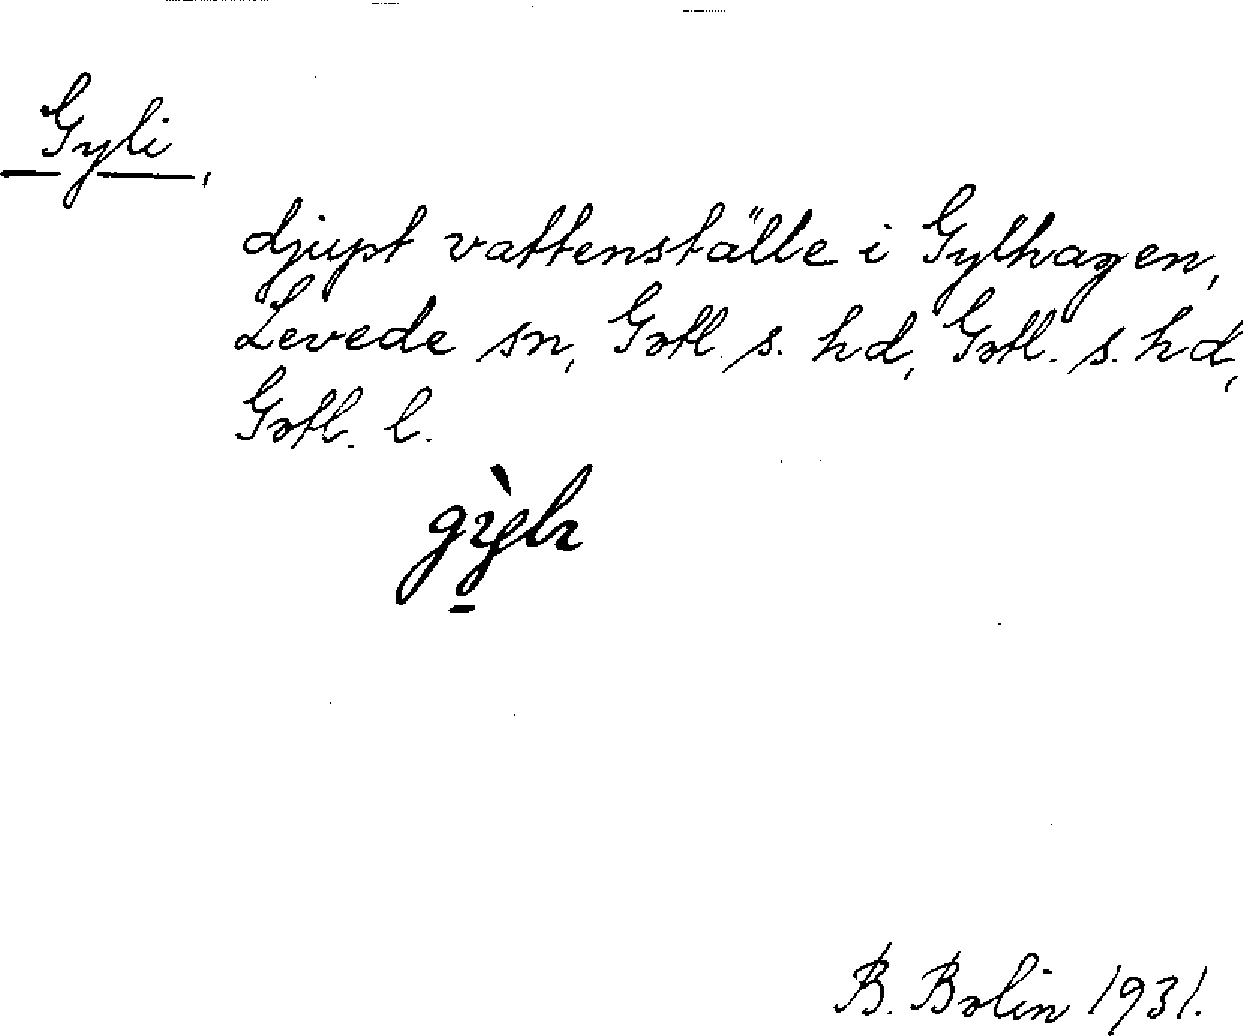 Gyli,
djupt vattenställe i Gylhagen,
Levede sn, Gotl. s. hd, Gotl. s. hd,
Gotl. l.
B. Bolin 1931.